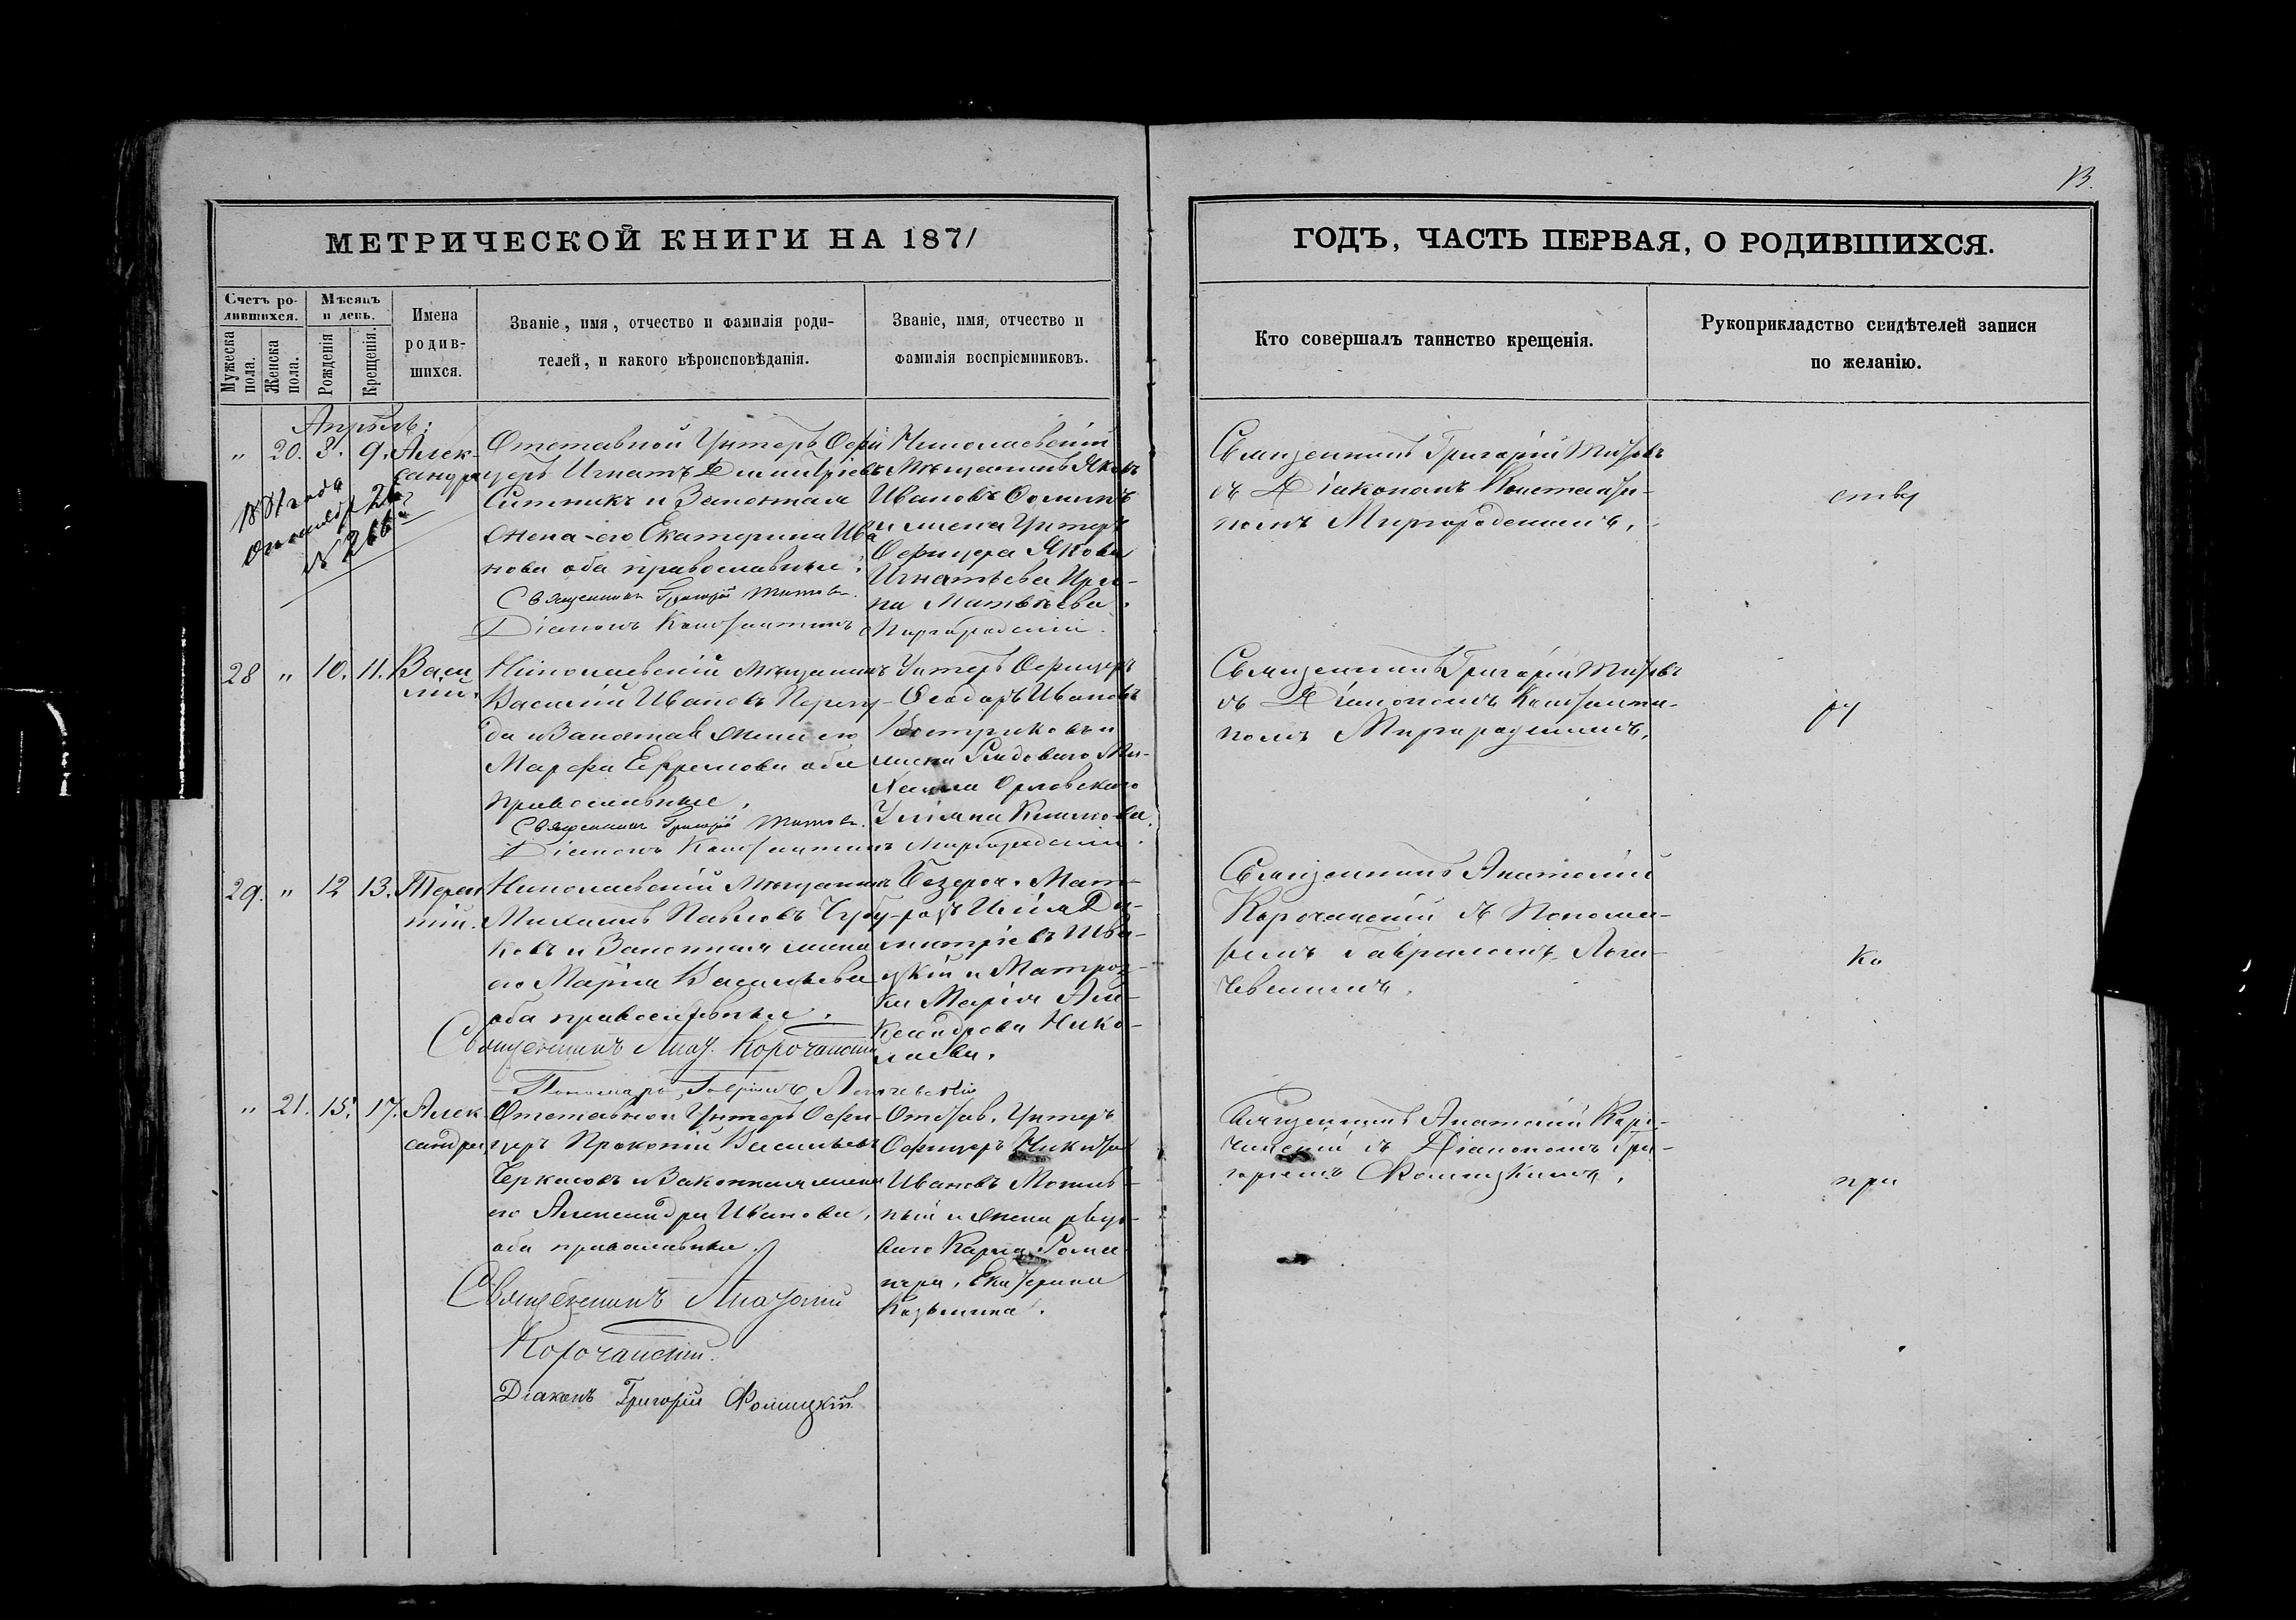 13.
МЕТРИЧЕСКОЙ КНИГИ НА 1871
ГОДЪ, ЧАСТЬ ПЕРВАЯ, О РОДИВШИХСЯ.
Счетъ ро-
дившихся.
Мужеска пола.
Женска пола.
Мѣсяцъ
и день.
Рожденія
Крещенія.
Имена
родив-
шихся.
Званіе, имя, отчество и фамилія роди-
телей, и какого вѣроисповѣданія.
Званіе, имя, отчество и
фамилія воспріемниковъ.
Кто совершалъ таинство крещенія.
Рукоприкладство свидѣтелей записи
по желанію.
Апрѣль:
" 20. 8. 9. Алек-
сандра
1881 года
№ 266
Отставной Унтеръ Офи
церъ Игнатъ Димитріевъ
Ситникъ и Законная
Жена его Екатерина Ива
нова оба православные.
Священникъ Григорій Титовъ.
Діаконъ Константинъ Миргородскій.
Николаевскій
Мѣщанинъ Яковъ
Ивановъ Фоминъ
и жена Унтеръ
Офицера Якова
Игнатьева Ири-
на Матвѣева.
Священникъ Григорій Титовъ
съ Діакономъ Константи-
номъ Миргородскимъ.
ству
28 " 10. 11. Васи
лій.
Николаевскій Мѣщанинъ
Василій Ивановъ Перегу-
да и Законная Жена его
Марфа Ефремова оба
православные.
Священникъ Григорій Титовъ.
Діаконъ Константинъ Миргородскій.
Унтеръ Офицеръ
Феодоръ Ивановъ
Востриковъ и
жена Рядового Ми-
хаила Орловскаго
Уліяна Климова.
Священникъ Григорій Титовъ
съ Діакономъ Константи-
номъ Миргородскимъ.
ру
29. " 12 13. Терен
тій.
Николаевскій Мѣщанинъ
Михаилъ Павловъ Чубу-
ковъ и Законная жена
его Марія Васильева
оба православные.
Священникъ Анат. Корочанскій
Пономарь Гавріилъ Логачевскій
Безсроч. Мат-
розъ Илія Ди-
митріевъ Ива-
цкій и Матроз-
ка Марія Але-
ксандрова Нико-
лаева.
Священникъ Анатолій
Корочанскій съ Понома-
ремъ Гавріиломъ Лога-
чевскимъ.
ко
" 21. 15. 17. Алек
сандра
Отставной Унтеръ Офи-
церъ Прокопій Васильевъ
Черкасовъ и Законная жена
его Александра Иванова,
оба православные.
Священникъ Анатолій
Корочанскій.
Діаконъ Григорій Фомицкій
Отстав. Унтеръ
Офицеръ Никита
Ивановъ
и жена рядо-
ваго Карпа
Екатерина
Козьмина.
Священникъ Анатолій Коро-
чанскій съ Діакономъ Гри-
горіемъ Фомицкимъ.
при